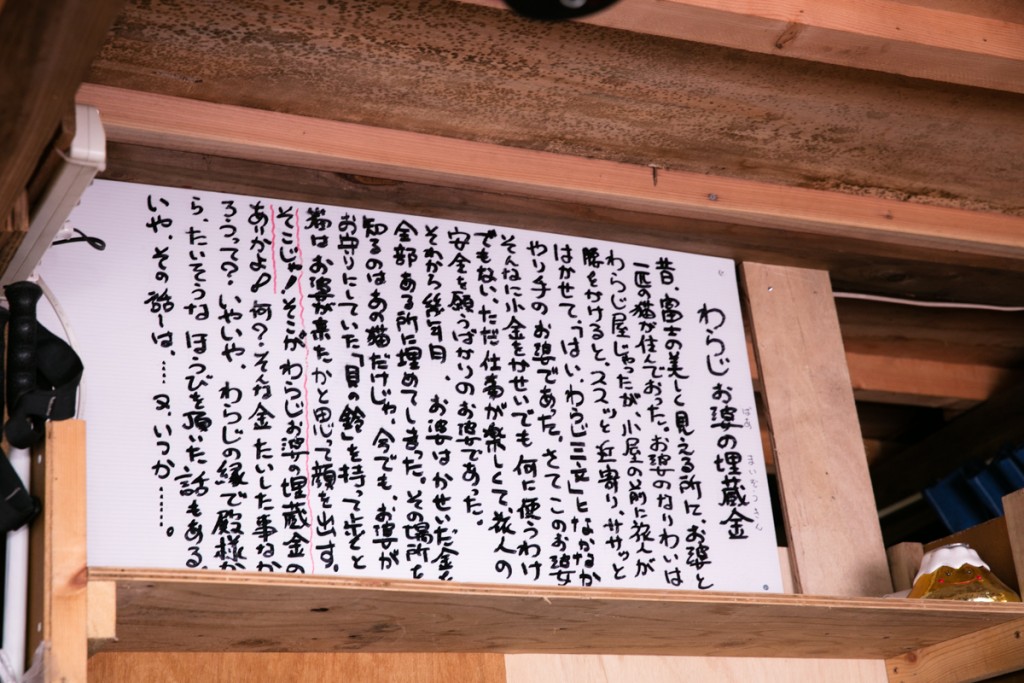 わらじお婆の埋蔵金
ばあ まいぞうきん
昔、富士の美しく見える所に、お婆と
一匹の猫が住んでおった。お婆のなりわいは
わらじ屋じゃったが、小屋の前に旅人が
腰をかけると、スススッと近寄り、ササッと
はかせて、「はい、わらじ三文」となかなか
やり手のお婆であった。さてこのお婆
そんなに小金をかせいでも何に使うわけ
でもない、ただ仕事が楽しくて、旅人の
安全を願うばかりのお婆であった。
それから後年目、お婆はかせいだ金を
全部ある所に埋めてしまった。その場所を
知るのはあの猫だけじゃ、今でも、お婆が
お守りにしていた「貝の鈴」を持って歩くと
猫はお婆が来たかと思って顔を出す。
そこじゃ!そこがわらじお婆の埋蔵金の
ありかよ!何?そんな金たいした事なか
ろうって?いやいや、わらじの縁で殿様か
ら、たいそうなほうびを頂いた話もある。
いや、その話しは、……又、いつか………。